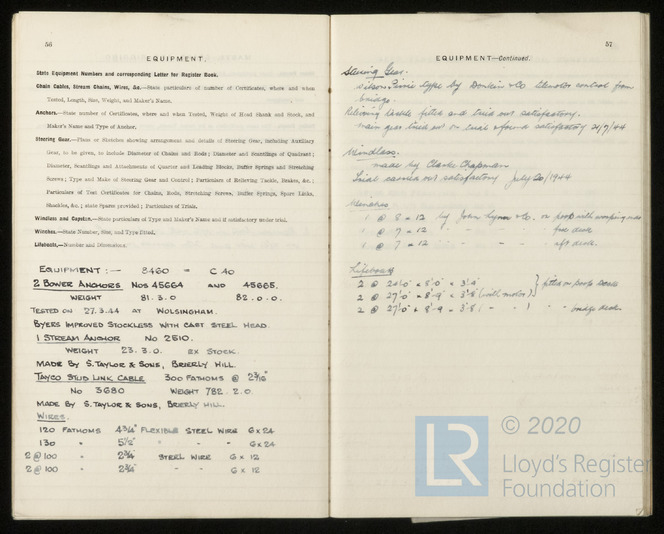 56
EQUIPMENT.
State Equipment Numbers and corresponding Letter for Register Book.
Chain Cables, Stream Chains, Wires, &c.—State particulars of number of Certificates, where and when
Tested, Length, Size, Weight, and Maker's Name.
Anchors.—State number of Certificates, where and when Tested, Weight of Head Shank and Stock, and
Maker's Name and Type of Anchor.
Steering Gear.—Plans or Sketches showing arrangement and details of Steering Gear, including Auxiliary
Gear, to be given, to include Diameter of Chains and Rods; Diameter and Scantlings of Quadrant;
Diameter, Scantlings and Attachments of Quarter and Leading Blocks, Buffer Springs and Stretching
Screws; Type and Make of Steering Gear and Control; Particulars of Relieving Tackle, Brakes, &c.;
Particulars of Test Certificates for Chains, Rods, Stretching Screws, Buffer Springs, Spare Links,
Shackles, &c.; state Spares provided; Particulars of Trials.
Windlass and Capstan.—State particulars of Type and Maker's Name and if satisfactory under trial.
Winches.—State Number, Size, and Type fitted.
Lifeboats.—Number and Dimensions.
EQUIPMENT:— 8460 = C40
2 BOWER ANCHORS Nos 45664 AND 45665.
WEIGHT 81.3.0 82.0.0.
TESTED ON 27.3.44 AT WOLSINGHAM.
BYERS IMPROVED STOCKLESS WITH CAST STEEL HEAD.
1 STREAM ANCHOR No 2510.
WEIGHT 23.3.0. EX STOCK.
MADE BY S. TAYLOR & SONS, BRIERLY HILL.
TAYCO STUD LINK CABLE 300 FATHOMS @ 2 3/16"
No 3680 WEIGHT 782.2.0.
MADE BY S. TAYLOR & SONS, BRIERLY HILL.
WIRES.
120 FATHOMS 4 3/4" FLEXIBLE STEEL WIRE 6 x 24
130 " 5 1/2" " - " 6 x 24
2 @ 100 " 2 3/4" STEEL WIRE 6 x 12
2 @ 100 " 2 3/4" - " 6 x 12
57
EQUIPMENT—Continued.
Steering Gear.
type by Donkin & Co telemotor control from
bridge.
Relieving tackle fitted and tried out satisfactory.
Main gear tried out on trial & found satisfactory 21/7/44
Windlass.
made by Clarke Chapman
Trial carried out satisfactory July 20/1944
Winches
1 @ 8 x 12 by John Lynn & Co. on poop with warping ends
1 @ 7 x 12 " " " fore deck
1 @ 7 x 12 " - " " aft deck.
Lifeboats
2 @ 24'.0" x 8'.0" x 3'.9"
2 @ 27'.0" x 8'.9" x 3'.8" (with motor) } fitted on poop deck
2 @ 27'.0" x 8'.9 x 3'.8 ( " " ) " " bridge deck.
LR
© 2020
Lloyd's Register
Foundation